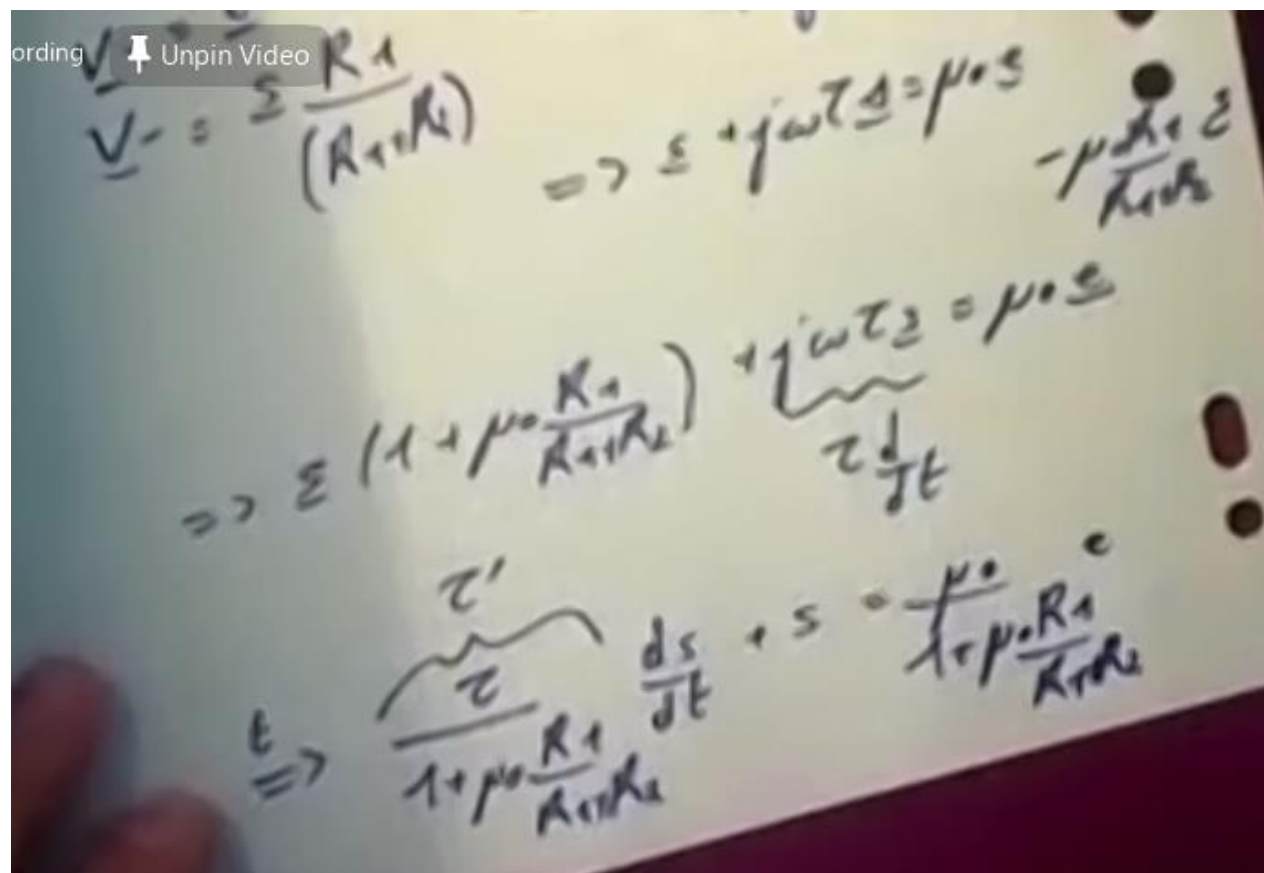 ording Unpin Video
V⁻ = s R1/(R1+R2)
=> s + jωτs = μ0 e - μ0 R1/(R1+R2) s
=> s (1 + μ0 R1/(R1+R2)) + jωτs = μ0 e
τ d/dt
τ'
t=> τ/(1+μ0 R1/(R1+R2)) ds/dt + s = μ0/(1+μ0 R1/(R1+R2)) e